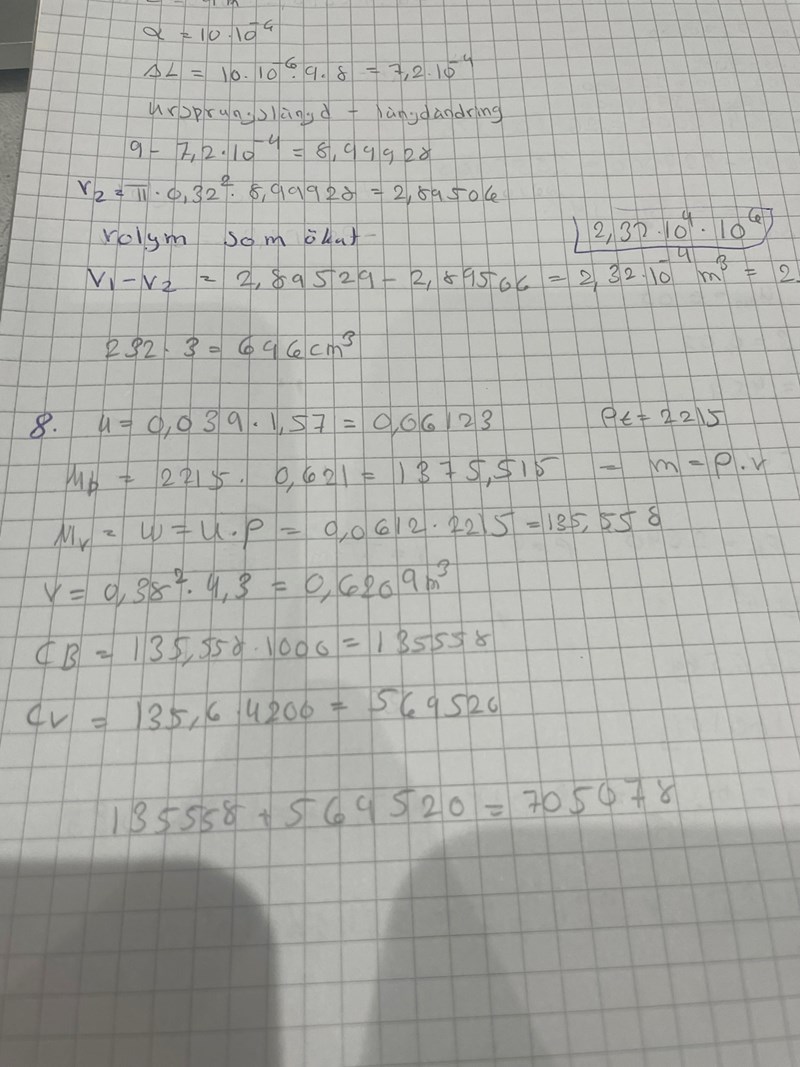 α = 10·10⁻⁶
ΔL = 10·10⁻⁶·9·8 = 7,2·10⁻⁴
Ursprungslängd - längdändring
9 - 7,2·10⁻⁴ = 8,99928
V₂ = π·0,32²·8,99928 = 2,89506
Volym som ökat
2,32·10⁻⁴·10⁶
V₁-V₂ = 2,89529 - 2,89506 = 2,32·10⁻⁴ m³ = 2
232·3 = 696 cm³
8. u = 0,039·1,57 = 0,06123 ρt = 2215
Mb = 2215·0,621 = 1375,515 - m = ρ·v
Mv = w = u·ρ = 0,0612·2215 = 135,558
V = 0,38²·4,3 = 0,6209 m³
CB = 135,558·1000 = 135558
CV = 135,6·4200 = 569520
135558 + 569520 = 705078